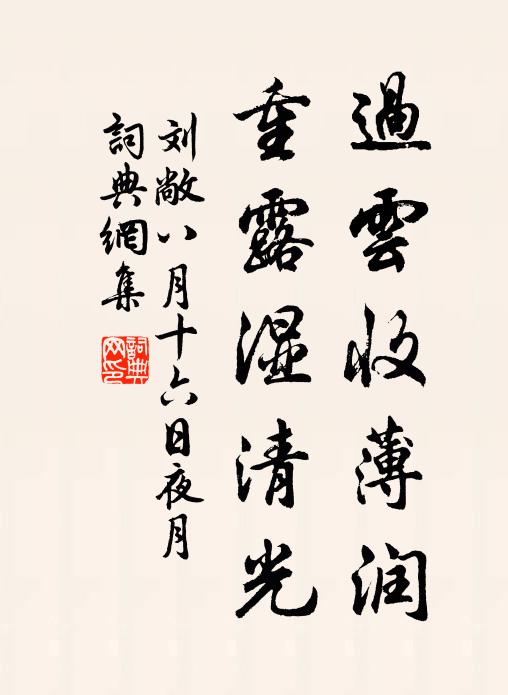 過雲收薄润
重露濕清光
刘敞八月十六日夜月
詞典網集
詞典
网印